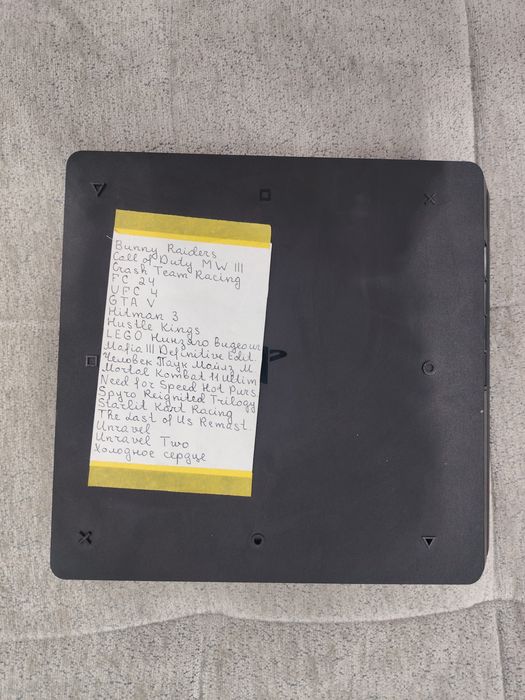 Bunny Raiders
Call of Duty MW III
Crash Team Racing
FC 24
UFC 4
GTA V
Hitman 3
Hustle Kings
LEGO Ниндзяго Видеоиг
Mafia III Definitive Edit.
Человек Паук Майлз М.
Mortal Kombat 11 Ultim
Need for Speed Hot Purs
Spyro Reignited Trilogy
Starlit Kart Racing
The Last of Us Remast
Unravel
Unravel Two
Холодное сердце